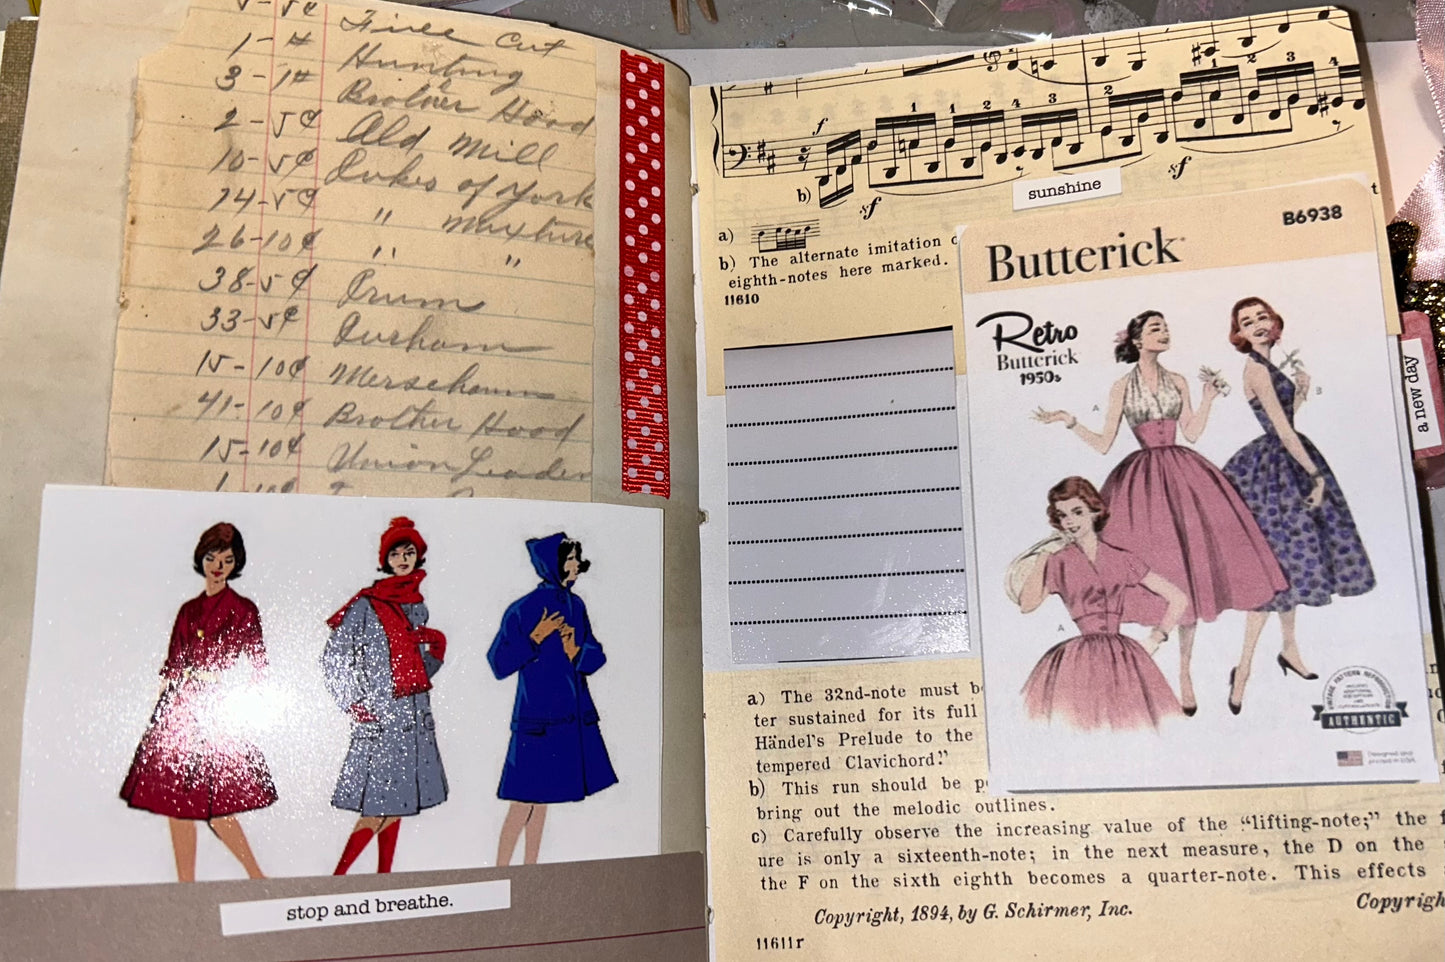 5-5¢ Fine Cut
1-# Hunting
3-1# Brother Hood
2-5¢ Old Mill
10-5¢ Dukes of York
14-5¢ " Mixture
26-10¢ " "
38-5¢ Drum
33-5¢ Durham
15-10¢ Merschaum
41-10¢ Brother Hood
15-10¢ Union Leader
stop and breathe.
1 1 2 4 3 2 1 2 3 4
f
b) sf sf
sunshine
a)
b) The alternate imitation
eighth-notes here marked.
11610
B6938
Butterick
Retro
Butterick
1950s
A
B
A
AUTHENTIC
Designed and
printed in USA
a new day
a) The 32nd-note must b
ter sustained for its full
Händel's Prelude to the
tempered Clavichord!"
b) This run should be p
bring out the melodic outlines.
c) Carefully observe the increasing value of the "lifting-note;" the f
ure is only a sixteenth-note; in the next measure, the D on the
the F on the sixth eighth becomes a quarter-note. This effects
Copyright, 1894, by G. Schirmer, Inc.
Copyrigh
11611r